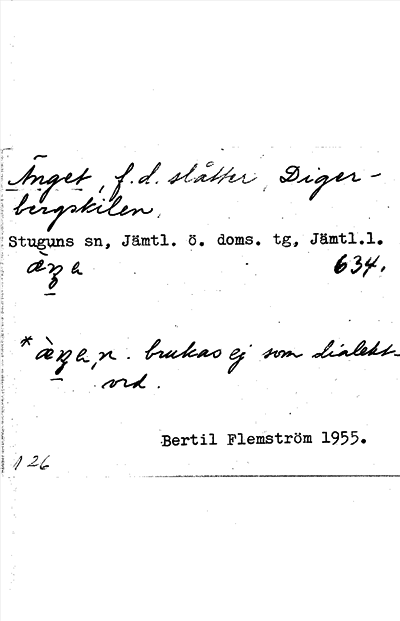 Änget, f.d. slåtter, Diger-
bergskilen,
Stuguns sn, Jämtl. ö. doms. tg, Jämtl.l.
634.
n. brukas ej som dialekt-
ord.
Bertil Flemström 1955.
126